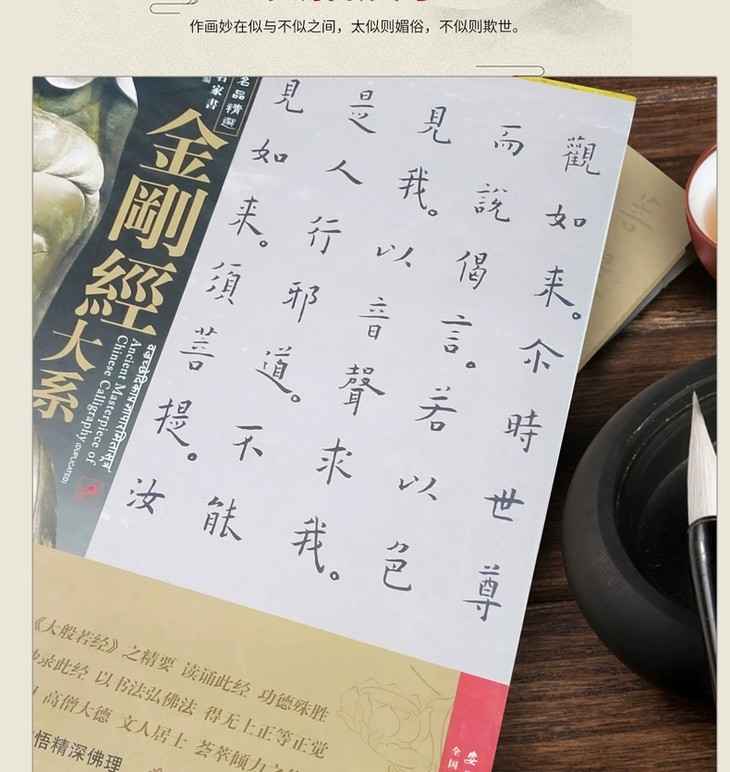 作画妙在似与不似之间，太似则媚俗，不似则欺世。
觀如来。尒時世尊
而說偈言。若以色
見我。以音聲求我。
是人行邪道。不能
見如来。須菩提。汝
名品精選
家書
金剛經大系
Ancient Masterpiece of
Chinese Calligraphy (DUPLICATED)
《大般若经》之精要 读诵此经 功德殊胜
录此经 以书法弘佛法 得无上正等正觉
高僧大德 文人居士 荟萃倾力之
悟精深佛理
全国